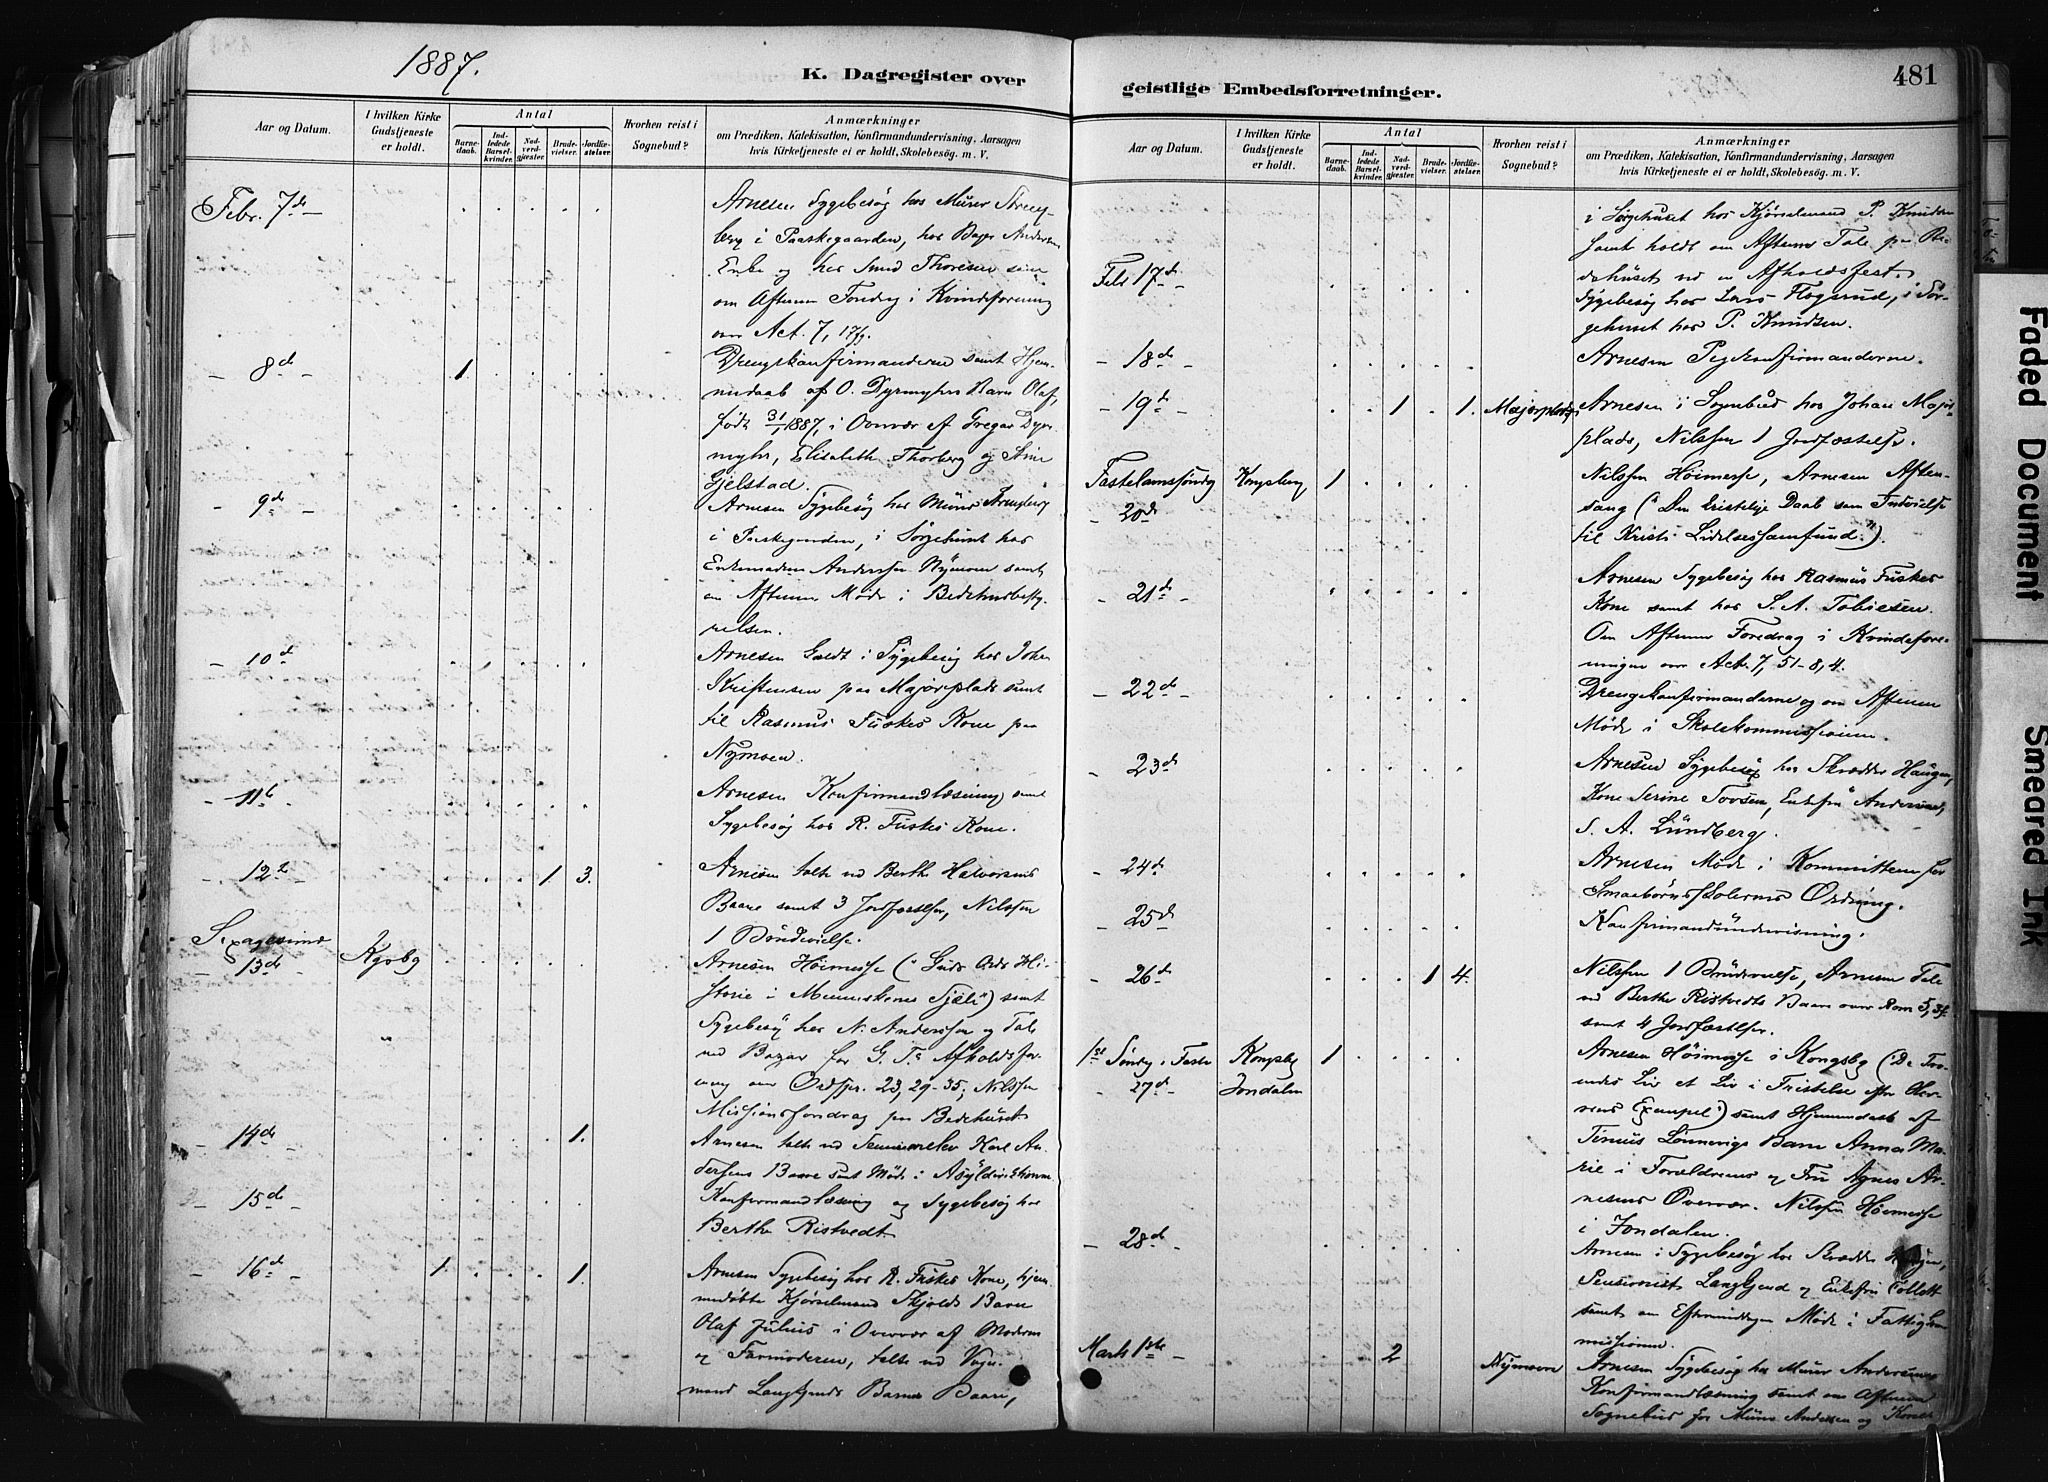 1887.
K. Dagregister over
Aar og Datum.
I hvilken Kirke Gudstjeneste er holdt.
Antal
Barnedaab.
Indledede Barselkvinder.
Nadverdgjester.
Brudevielser.
Jordfæstelser.
Hvorhen reist i Sognebud?
Anmærkninger
om Prædiken, Katekisation, Konfirmandundervisning, Aarsagen
hvis Kirketjeneste ei er holdt, Skolebesøg. m. V.
Febr. 7de
Arnesen Sygebesøg hos Murer Streng-
berg i Paaskegaarden, hos Andersen
Enke og hos Smed Thoresen samt
om Aftenen Foredrag i Kvindeforening
over Act. 7, 17 fg.
8de 1.
Drengekonfirmanderne samt Hjem-
medaab af O. Dyrmyhrs Barn Olaf,
født 31/1 1887, i Overvær af Gregar Dyr-
myhr, Elisabeth Thorberg og Stine
Gjelstad.
9de
Arnesen Sygebesøg hos Murer Strengberg
i Paaskegaarden, i Sørgehuset hos
Enkemadam Anderssen Nymoen samt
om Aftenen Møde i Bedehusbesty-
relsen.
10de
Arnesen Galdt i Sygebesøg hos Johan
Kristensen paa Majorplads samt
til Rasmus Fuskes Kone paa
Nymoen.
11te
Arnesen Konfirmandlæsning samt
Sygebesøg hos R. Fuskes Kone.
12te 1. 3.
Arnesen talte ved Berthe Halvorsens
Baare samt 3 Jordfæstelser, Nilssen
1 Brudevielse.
Sexagesima
13de Kgsbg
Arnesen Høimesse ("Guds Ords Hi-
storie i Menneskenes Sjæle") samt
Sygebesøg hos N. Anderssen og Tale
ved Bazar for G. T's Afholdsfor-
ening over Ordspr. 23, 29-35; Nilssen
Missionsforedrag paa Bedehuset
14de 1.
Arnesen talte ved Karl An-
dersens Baare samt Møde i Asyldirektionen
15de
Konfirmandlæsning og Sygebesøg hos
Berthe Ristvedt
16de 1. 1.
Arnesen Sygebesøg hos R. Fuskes Kone, hjem-
medøbte Kjørselmand Skjolds Barn
Olaf Julius i Overvær af Moderen
og Farmoderen, talte ved Vogn-
mand Langejends Barns Baare,
geistlige Embedsforretninger.
481
Aar og Datum.
I hvilken Kirke Gudstjeneste er holdt.
Antal
Barnedaab.
Indledede Barselkvinder.
Nadverdgjester.
Brudevielser.
Jordfæstelser.
Hvorhen reist i Sognebud?
Anmærkninger
om Prædiken, Katekisation, Konfirmandundervisning, Aarsagen
hvis Kirketjeneste ei er holdt, Skolebesøg. m. V.
i Sørgehuset hos Kjørselmand P. Knudsen
samt holdt om Aftenen Tale paa Be-
dehuset ved en Afholdsfest.
Feb 17de
Sygebesøg hos Lars Hogsrud, i Sør-
gehuset hos P. Knudsen.
18de
Arnesen Pigekonfirmanderne.
19de 1 1. Majorplads
Arnesen i Sognebud hos Johan Major-
plads, Nilssen 1 Jordfæstelse.
Fastelavnssøndag Kongsberg 1
20de
Nilssen Høimesse, Arnesen Aften-
sang ("Den kristelige Daab som Indvielse
til Kristi Lidelsessamfund").
21de
Arnesen Sygebesøg hos Rasmus Fuskes
Kone samt hos S. A. Tobiesen.
Om Aftenen Foredrag i Kvindefore-
ningen over Act. 7, 51-8, 4.
22de
Drengekonfirmanderne og om Aftenen
Møde i Skolekommissionen.
23de
Arnesen Sygebesøg hos Skrædder Haugen,
Kone Serine Tovsen, Enkefru Andersen,
S. A. Lundberg.
24de
Arnesen Møde i Kommitteen for
Smaabørnsskolernes Ordning.
25de
Konfirmandundervisning.
26de 1 4.
Nilssen 1 Brudevielse, Arnesen Tale
ved Berthe Ristvedts Baare over Rom 5,
samt 4 Jordfæstelser.
1ste Søndag i Faste Kongsbg 1
27de Jondalen
Arnesen Høimesse i Kongsbg ("De Tro-
endes Liv et Liv i Fristelse efter Her-
rens Exempel") samt Hjemmedaab af
Tinius Lønnevigs Barn Anna Ma-
rie i Forældrenes og Fru Agnes Ar-
nesens Overvær. Nilssen Høimesse
i Jondalen.
28de
Arnesen i Sygebesøg hos Skrædder Haugen,
Pensionist Langejend og Enkefru Collett
samt om Eftermiddagen Møde i Fattigkom-
missionen.
Marts 1ste 2 Nymoen
Arnesen Sygebesøg hos Murer Andersen
Konfirmandlæsning samt om Aftenen
Sognebud for Murer Andersen og Kone
Faded Document
Smeared Ink